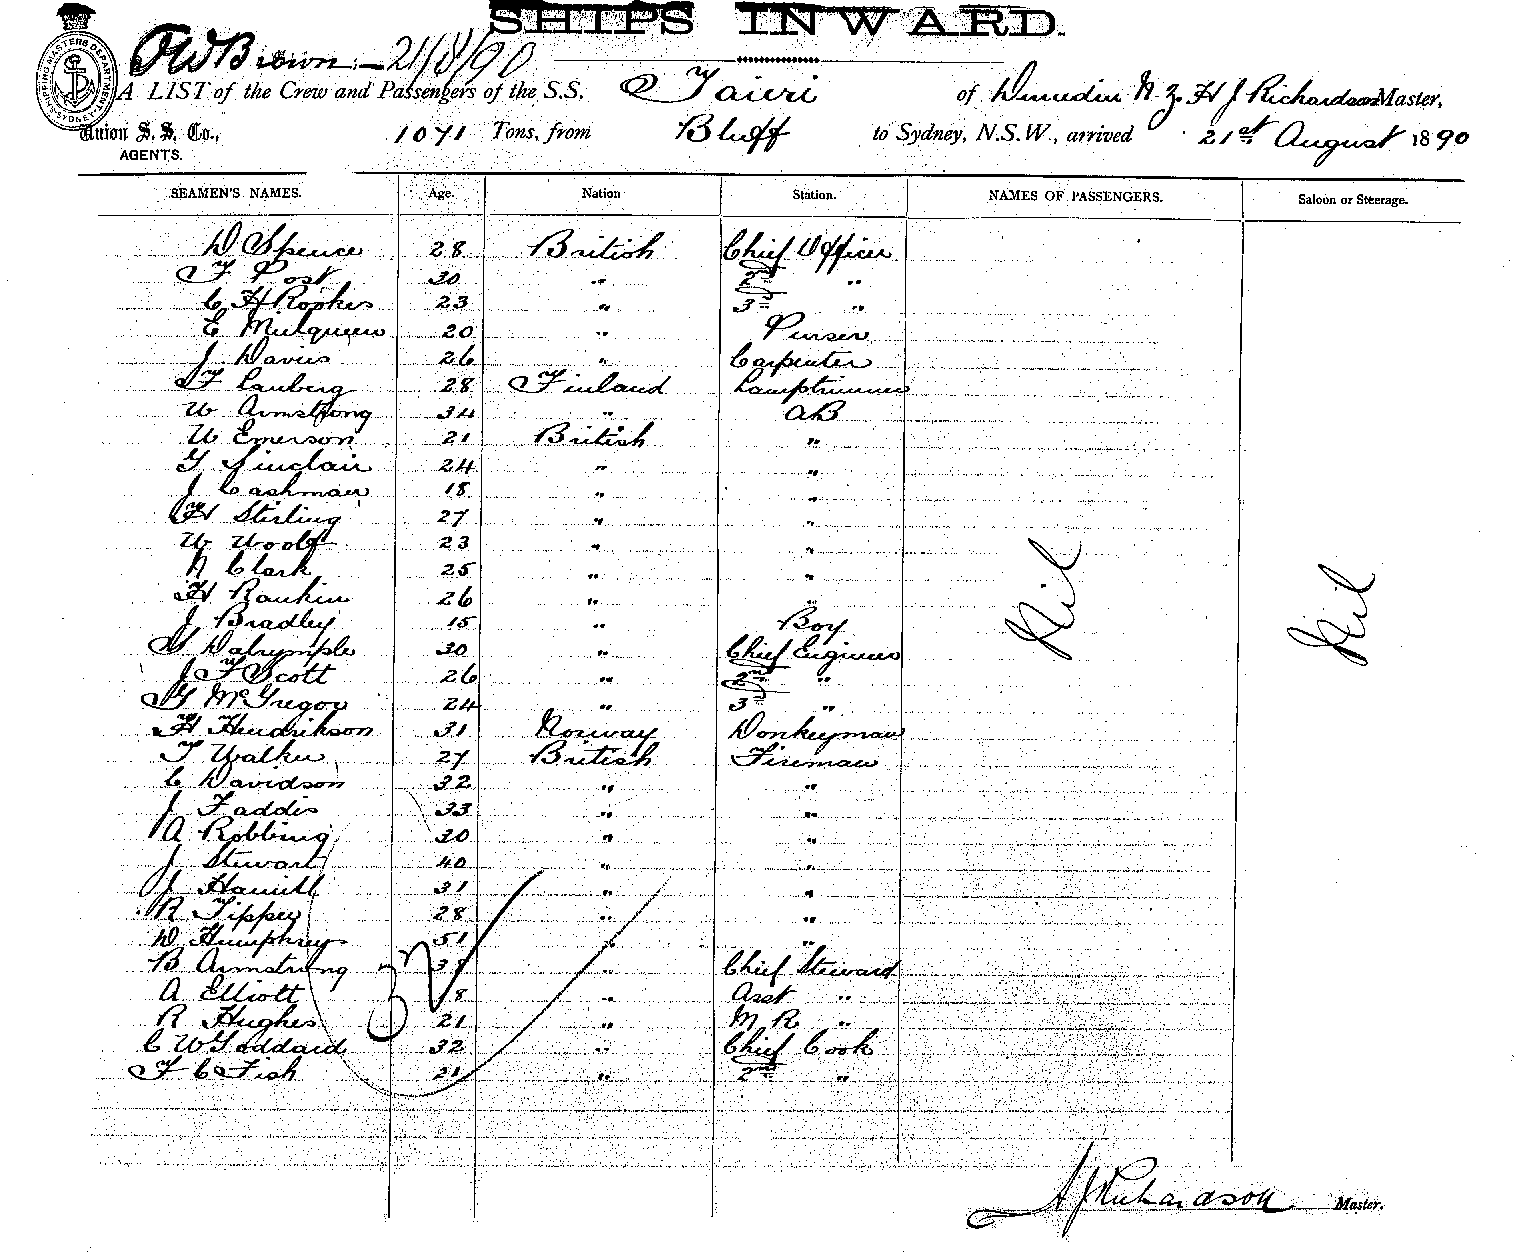 SHIPS INWARD.
SHIPPING MASTERS DEPARTMENT SYDNEY
F W Brown 21/8/90
A LIST of the Crew and Passengers of the S.S. Taieri of Dunedin N.Z. H J Richardson Master,
Union S. S. Co., 1071 Tons, from Bluff to Sydney, N.S.W., arrived 21st August 1890
AGENTS.
SEAMEN'S NAMES. Age. Nation Station. NAMES OF PASSENGERS. Saloon or Steerage.
D Spence 28 British Chief Officer
F Post 30 " 2nd "
C H Rookes 23 " 3rd "
E Mulqueen 20 " Purser
J Davies 26 " Carpenter
F Lauberg 28 Finland Lamptrimmer
W Armstrong 34 " AB
W Emerson 21 British "
G Sinclair 24 " "
J Cashman 18 " "
H Stirling 27 " "
W Woolf 23 " "
N Clark 25 " "
H Rankin 26 " "
J Bradley 15 " Boy
Nil Nil
G Dalrymple 30 " Chief Engineer
J F Scott 26 " 2nd "
G McGregor 24 " 3rd "
H Hendrikson 31 Norway Donkeyman
T Walker 27 British Fireman
C Davidson 32 " "
J Faddis 33 " "
A Robbing 30 " "
J Stewart 40 " "
J Hamill 31 " "
R Tippey 28 " "
D Humphreys 51 " "
B Armstrong 38 " Chief Steward
A Elliott 18 " Asst "
R Hughes 21 " M R "
C W Goddard 32 " Chief Cook
F C Fish 21 " 2nd "
H J Richardson Master.